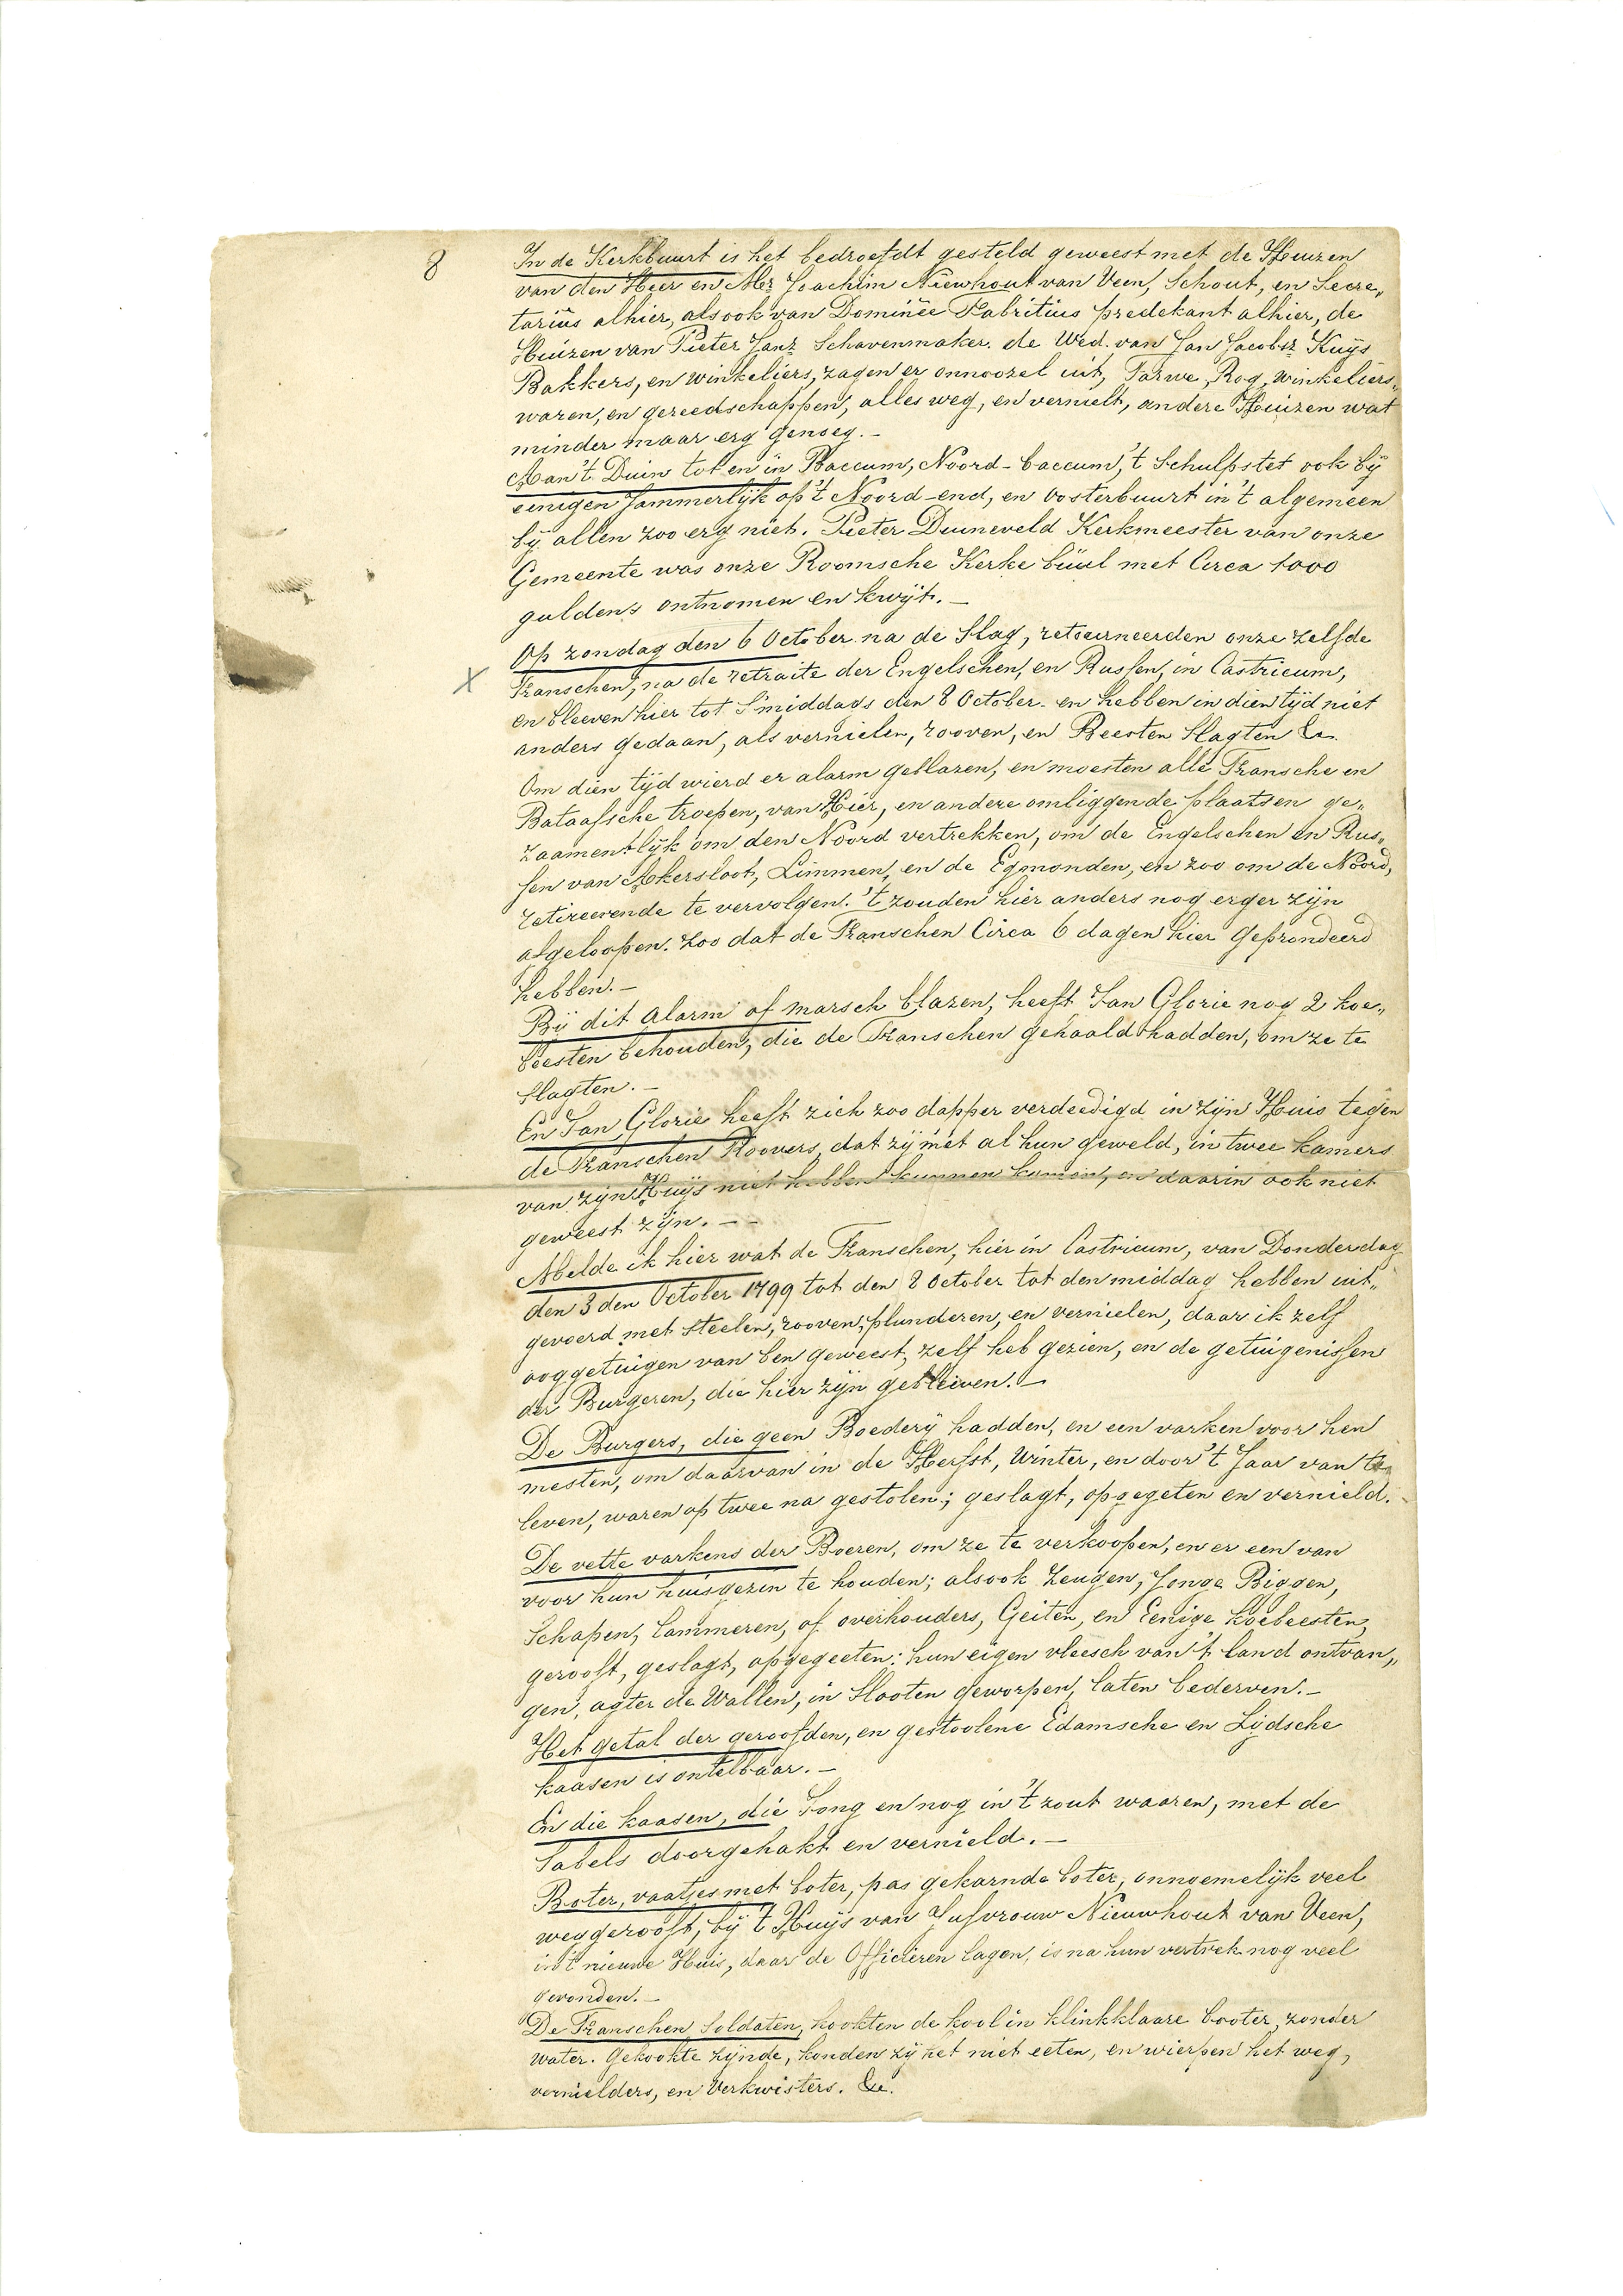 8
In de Kerkbuurt is het bedroefdt gesteld geweest met de Huizen
van den Heer en Mr Joachim Nieuwhout van Veen, Schout, en Secre„
tariûs alhier, alsook van Dominée Fabritius predekant alhier, de
Huizen van Pieter Janz Schavenmaker. de Wed. van Jan Jacobsz Kuÿs
Bakkers, en winkeliers, zagen er onnoozel uit, Tarwe, Rog, winkeliers„
waren, en gereedschappen, alles weg, en vernielt, andere Huizen wat
minder maar erg genoeg. —
Aan 't Duin tot en in Baccum, Noord-baccum, 't Schulpstet ook bÿ
einigen Jammerlÿk op 't Noord-end, en oosterbuurt in 't algemeen
bÿ allen zoo erg niet. Pieter Duineveld Kerkmeester van onze
Gemeente was onze Roomsche Kerke büul met Circa 1000
guldens ontnomen en kwÿt. —
Op zondag den 6 October na de Slag, retourneerden onze zelfde
X
Franschen, na de retraite der Engelschen, en Russen, in Castricum,
en bleeven hier tot S'middags den 8 October. en hebben in dien tÿd niet
anders gedaan, als vernielen, rooven, en Beesten Slagten &c.
Om dien tÿd wierd er alarm geblazen, en moesten alle Fransche en
Bataafsche troepen, van Hier, en andere omliggende plaatsen ge„
zaamentlÿk om den Noord vertrekken, om de Engelschen en Rus„
sen van Akersloot, Limmen, en de Egmonden, en zoo om de Noord,
retireerende te vervolgen. 't zouden hier anders nog erger zÿn
afgeloopen. zoo dat de Franschen Circa 6 dagen hier geprondeerd
hebben. —
Bÿ dit Alarm of marsch blazen, heeft Jan Glorie nog 2 koe„
beesten behouden, die de Franschen gehaald hadden, om ze te
slagten. —
En Jan Glorie heeft zich zoo dapper verdeedigd in zÿn Huis tegen
de Franschen Roovers, dat zÿ met al hun geweld, in twee kamers
van zÿn Huÿs niet hebben kunnen komen, en daarin ook niet
geweest zÿn. — —
Melde ik hier wat de Franschen, hier in Castricum, van Donderdag
den 3 den October 1799 tot den 8 October tot den middag hebben uit„
gevoerd met steelen, rooven, plunderen, en vernielen, daar ik zelf
ooggetuigen van ben geweest, zelf heb gezien, en de getuigenissen
der Burgeren, die hier zÿn gebleiven. —
De Burgers, die geen Boederÿ hadden, en een varken voor hen
mesten, om daarvan in de Herfst, Winter, en door 't Jaar van te
leven, waren op twee na gestolen; geslagt, opgegeten en vernield. —
De vette varkens der Boeren, om ze te verkoopen, en er een van
voor hun huisgezin te houden; alsook Zeugen, Jonge Biggen,
Schapen, lammeren, of overhouders, Geiten, en Eenige koebeesten,
gerooft, geslagt, opgegeeten: hun eigen vleesch van 't land ontvan„
gen, agter de Wallen, in Slooten geworpen, laten bederven. —
Het getal der gerooffden, en gestoolene Edamsche en Lÿdsche
kaasen is ontelbaar. —
En die kaasen, die Jong en nog in 't zout waaren, met de
Sabels doorgehakt en vernield. —
Boter, vaatjes met boter, pas gekarnde boter, onnoemelÿk veel
weggerooft, bÿ 't Huÿs van Jufvrouw Nieuwhout van Veen,
in 't nieuwe Huis, daar de Officieren lagen, is na hun vertrek nog veel
gevonden. —
De Franschen Soldaten, kookten de kool in klinkklaare booter, zonder
water. Gekookte zÿnde, konden zÿ het niet eeten, en wierpen het weg,
vernielders, en Verkwisters. &c.